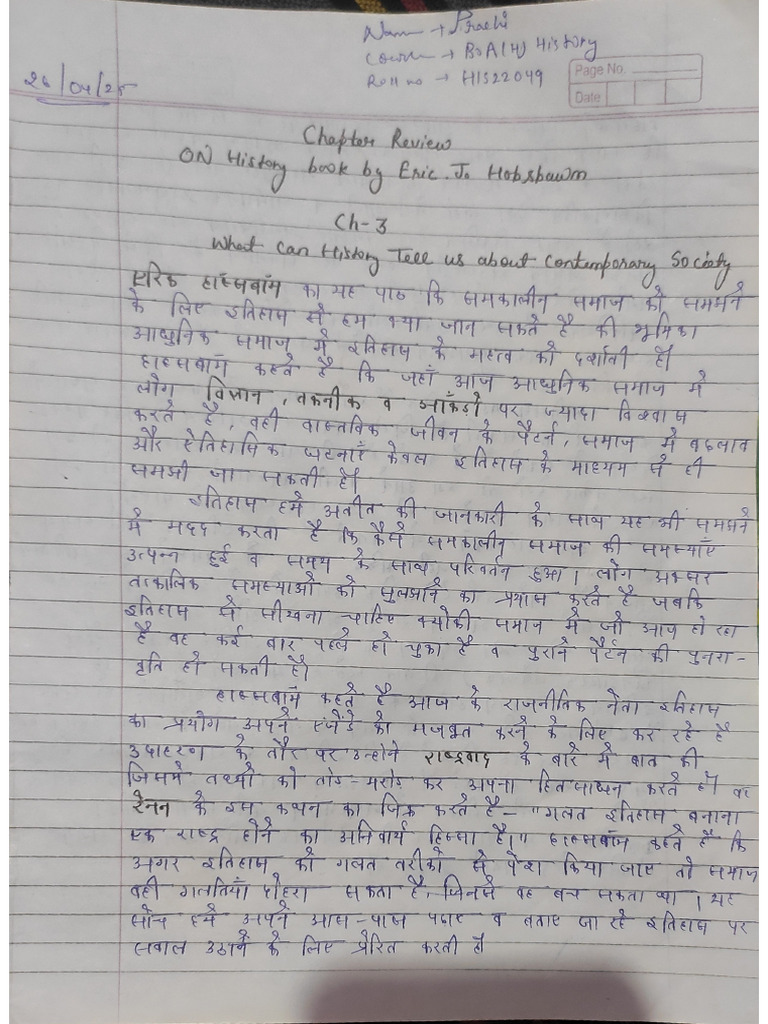 Name → Prachi
Course → B.A (H) History
Roll no → HIS22049
Page No.
Date
26/04/25
Chapter Review
ON History book by Eric. J. Hobsbawm
Ch-3
What Can History Tell us about Contemporary Society
एरिक हाॅब्सबाॅम का यह पाठ कि समकालीन समाज को समझने
के लिए इतिहास से हम क्या जान सकते है की भूमिका
आधुनिक समाज में इतिहास के महत्व को दर्शाती है।
हाब्सबाॅम कहते है कि जहाँ आज आधुनिक समाज में
लोग विज्ञान, तकनीक व आँकड़ो पर ज्यादा विश्वास
करते है, वही वास्तविक जीवन के पैटर्न, समाज में बदलाव
और ऐतिहासिक घटनाएँ केवल इतिहास के माध्यम से ही
समझी जा सकती है।
इतिहास हमें अतीत की जानकारी के साथ यह भी समझने
में मदद करता है कि कैसे समकालीन समाज की समस्याएँ
उत्पन्न हुई व समय के साथ परिवर्तन हुआ। लोग अक्सर
तात्कालिक समस्याओं को सुलझाने का प्रयास करते है जबकि
इतिहास से सीखना चाहिए क्योकी समाज में जो आज हो रहा
है वह कई बार पहले हो चुका है व पुराने पैटर्न की पुनरा-
वृति हो सकती है।
हाब्सबाॅम कहते है आज के राजनीतिक नेता इतिहास
का प्रयोग अपने एजेंडे को मजबूत करने के लिए कर रहे है
उदाहरण के तौर पर उन्होने राष्ट्रवाद के बारे में बात की
जिसमें तथ्यो को तोड-मरोड कर अपना हित साधन करते है। वह
रेनन के इस कथन का जिक्र करते है- "गलत इतिहास बनाना
एक राष्ट्र होने का अनिवार्य हिस्सा है।" हाब्सबाॅम कहते है कि
अगर इतिहास को गलत तरीको से पेश किया जाए तो समाज
वही गलतियाँ दोहरा सकता है, जिनसे वह बच सकता था। यह
सोच हमें अपने आस-पास पढाए व बताए जा रहे इतिहास पर
सवाल उठाने के लिए प्रेरित करती है।